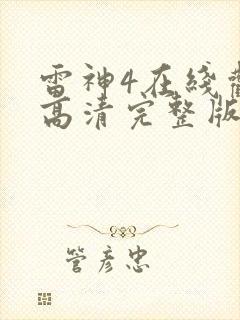 雷神4在线
高清完整版
管彦忠